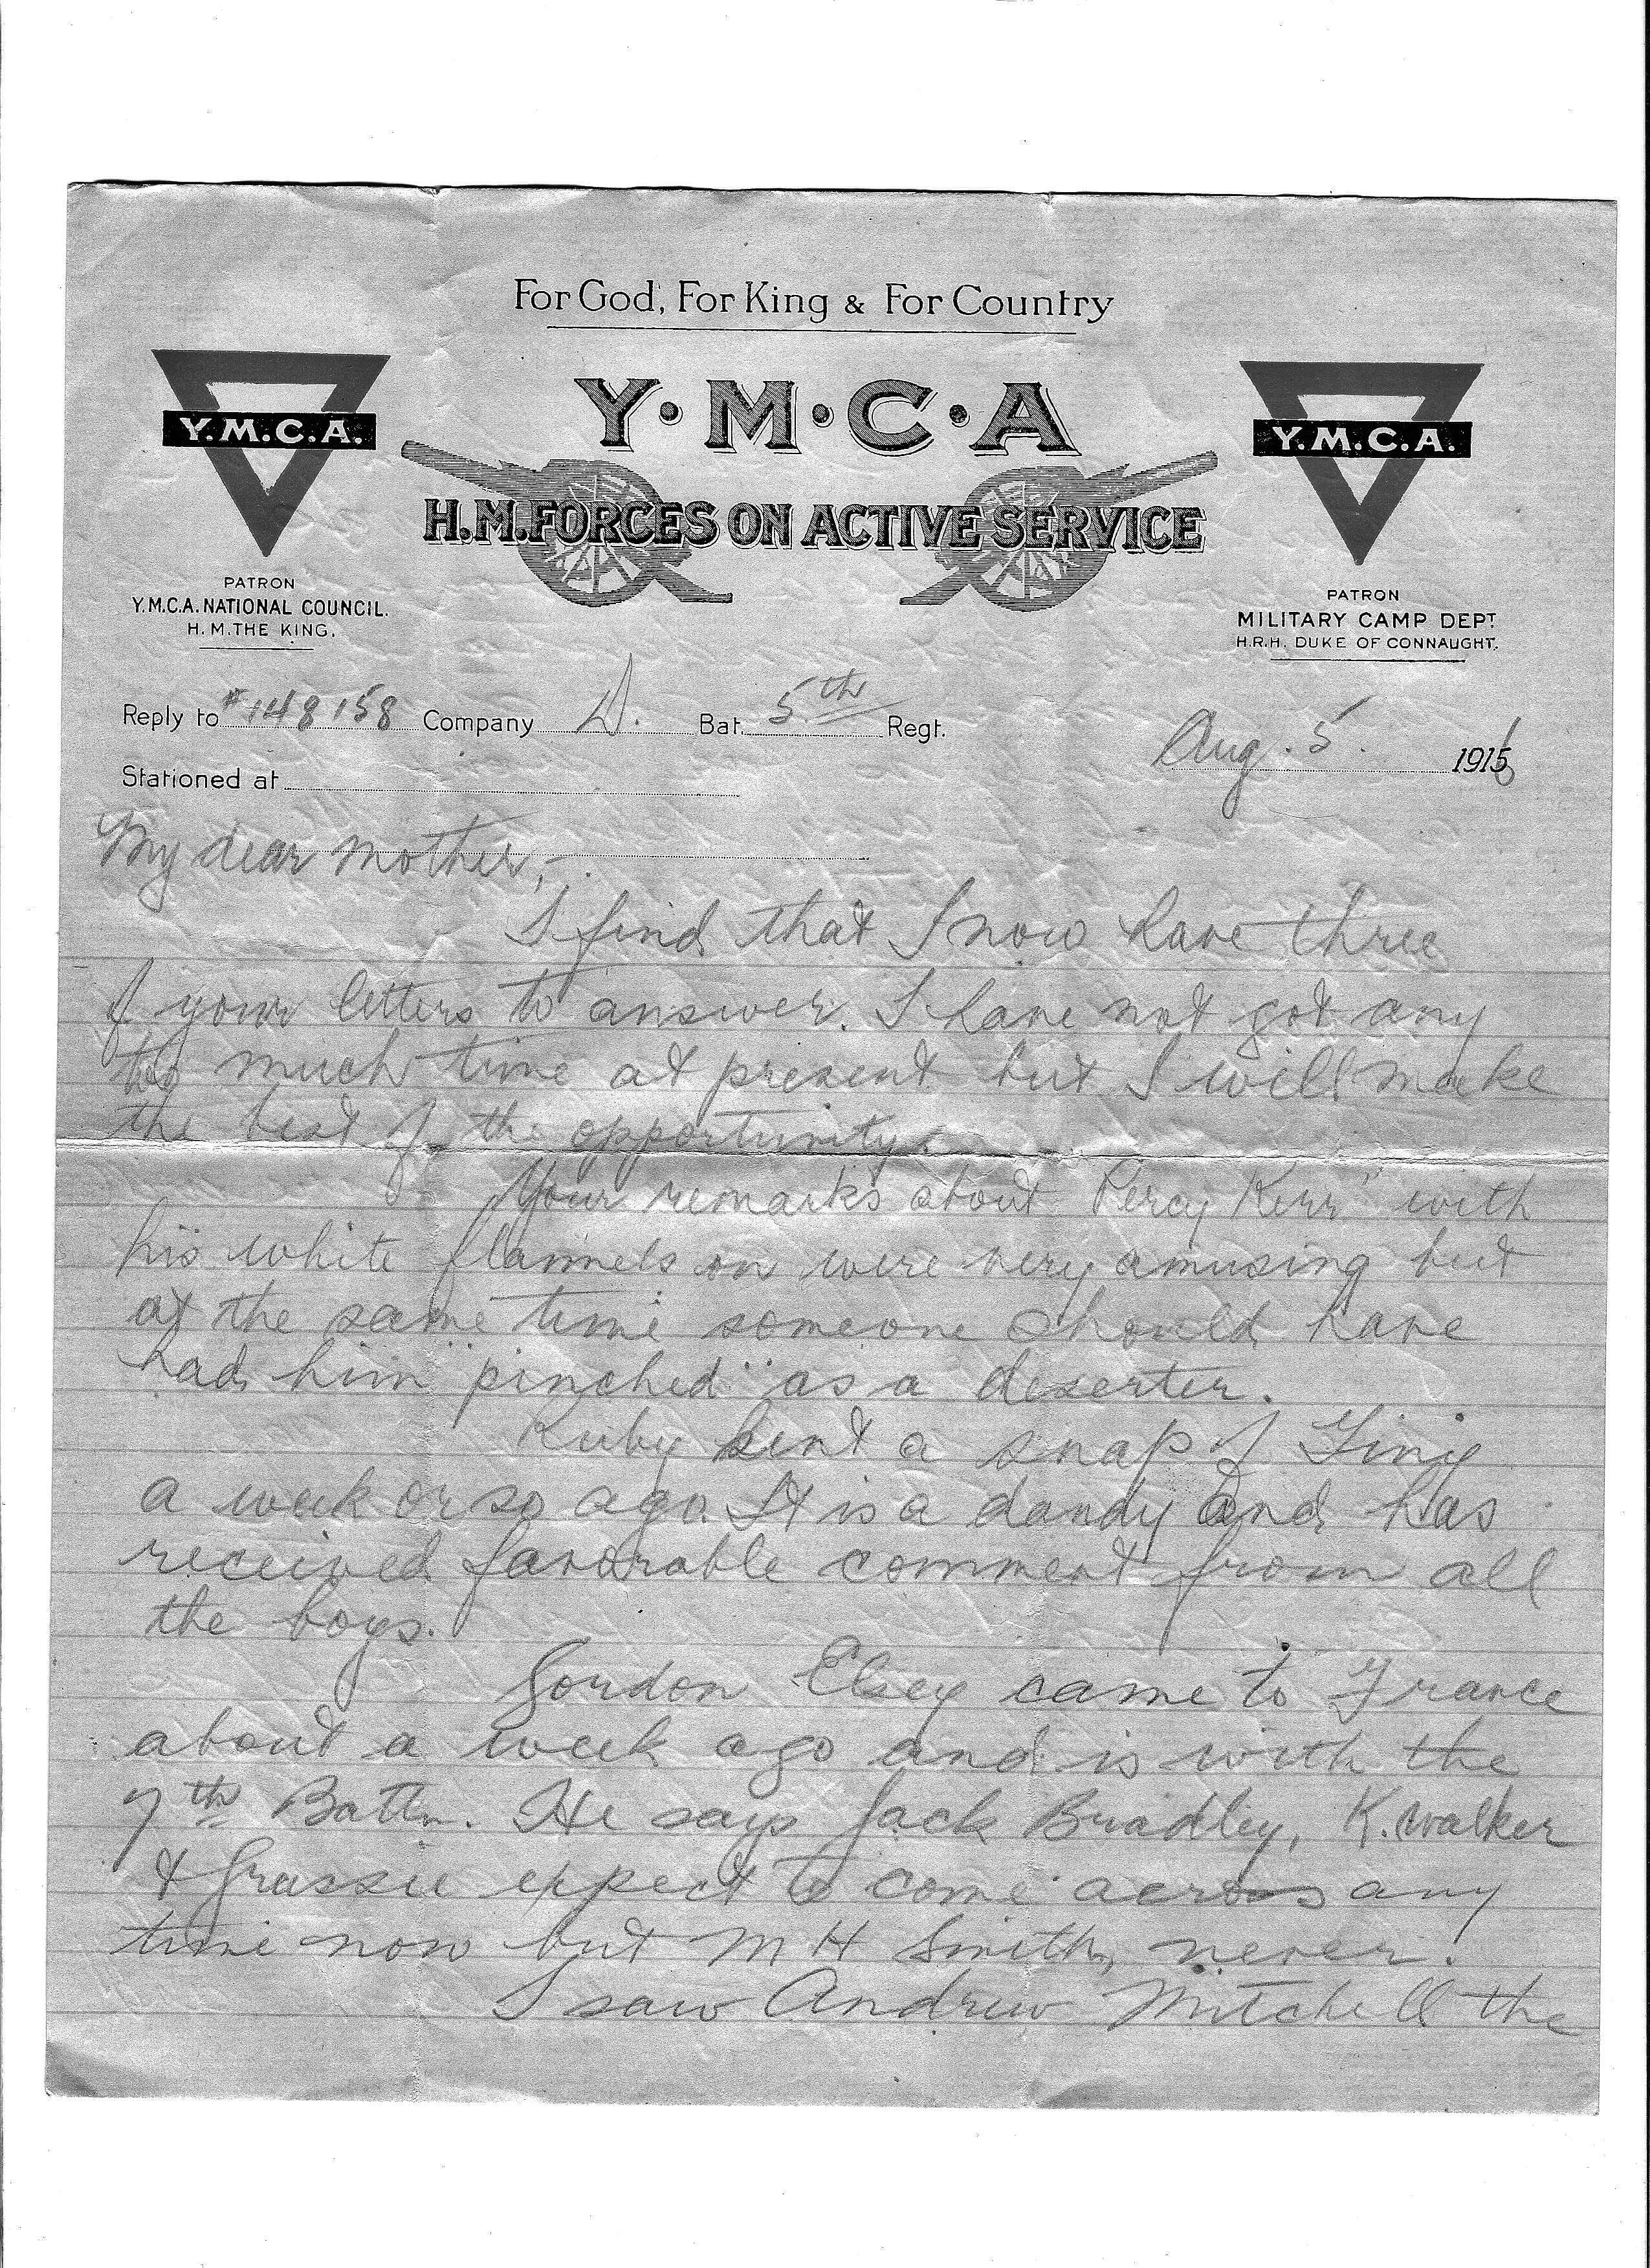 For God, For King & For Country
Y.M.C.A.
Y•M•C•A
Y.M.C.A.
H.M. FORCES ON ACTIVE SERVICE
PATRON
Y.M.C.A. NATIONAL COUNCIL.
H.M. THE KING.
PATRON
MILITARY CAMP DEPT
H.R.H. DUKE OF CONNAUGHT.
Reply to #148158 Company D. Bat. 5th Regt.
Aug. 5. 1916
Stationed at
My dear mother,-
I find that I now have three
of your letters to answer. I have not got any
too much time at present but I will make
the best of the opportunity.
Your remarks about "Percy Kerr" with
his white flannels on were very amusing but
at the same time someone should have
had him "pinched" as a deserter.
Ruby sent a snap of Tiny
a week or so ago. It is a dandy and has
received favorable comment from all
the boys.
Gordon Elsey came to France
about a week ago and is with the
7th Battn. He says Jack Bradley, K. Walker
& Grassie expect to come across any
time now but M H Smith, never.
I saw Andrew Mitchell the